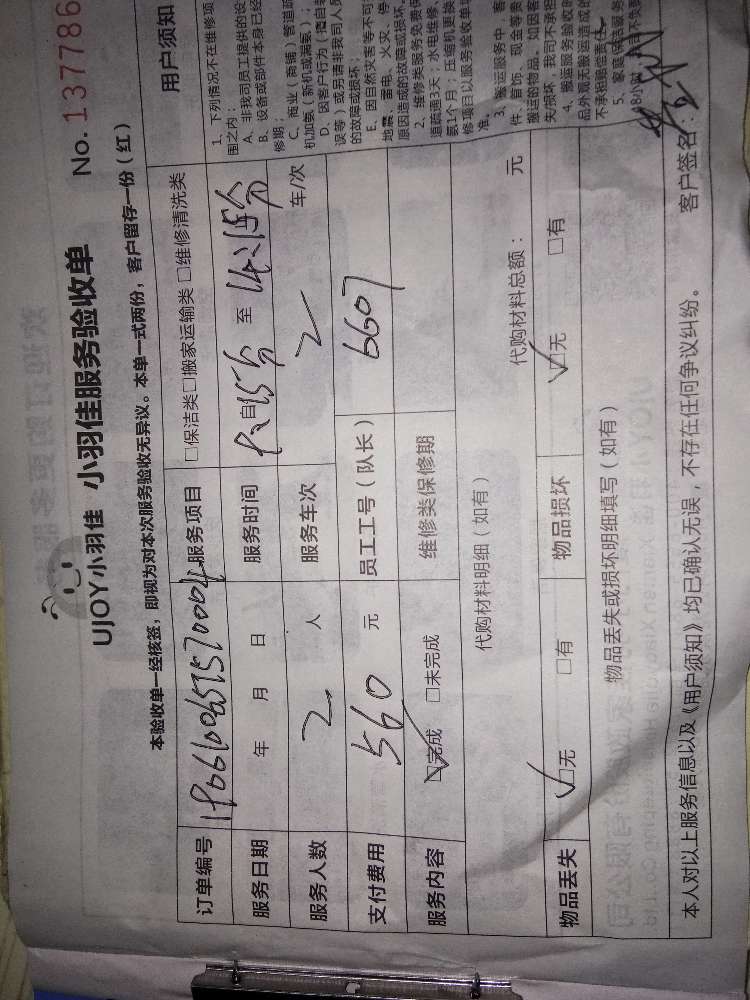 UJOY小羽佳 小羽佳服务验收单 No. 137786
本验收单一经核签，即视为对本次服务验收无异议。本单一式两份，客户留存一份（红）
订单编号 服务项目 □保洁类□搬家运输类 □维修清洗类
服务日期 年 月 日 服务时间 自 至
服务人数 2 人 服务车次 2 车/次
支付费用 560 元 员工工号（队长） 6607
服务内容 ☑完成 □未完成 维修类保修期
代购材料明细（如有） 代购材料总额： 元
物品丢失 ☑无 □有 物品损坏 ☑无 □有
物品丢失或损坏明细填写（如有）
本人对以上服务信息以及《用户须知》均已确认无误，不存在任何争议纠纷。 客户签名：
用户须知
1、下列情况不在维修项
围之内：
A、非我司员工提供的设
B、设备或部件本身已经
修期；
C、商业（商铺）管道疏
机加氨（新机或满氨）；
D、因客户行为（擅自装
误等）或另请非我司人员
的故障或损坏；
E、因自然灾害等不可
地震、雷电、火灾、停
原因造成的故障或损坏。
2、维修类服务免费保
道疏通3天；水电维修、
氨1个月；压缩机更换
修项目以服务验收单填
准。
3、搬运服务中，客
件、首饰、现金等贵
搬运的物品，如因客
失损坏，我司不承担
4、搬运服务验收时
品外观无搬运造成的
不承担赔偿责任
5、家庭保洁服务
48小时